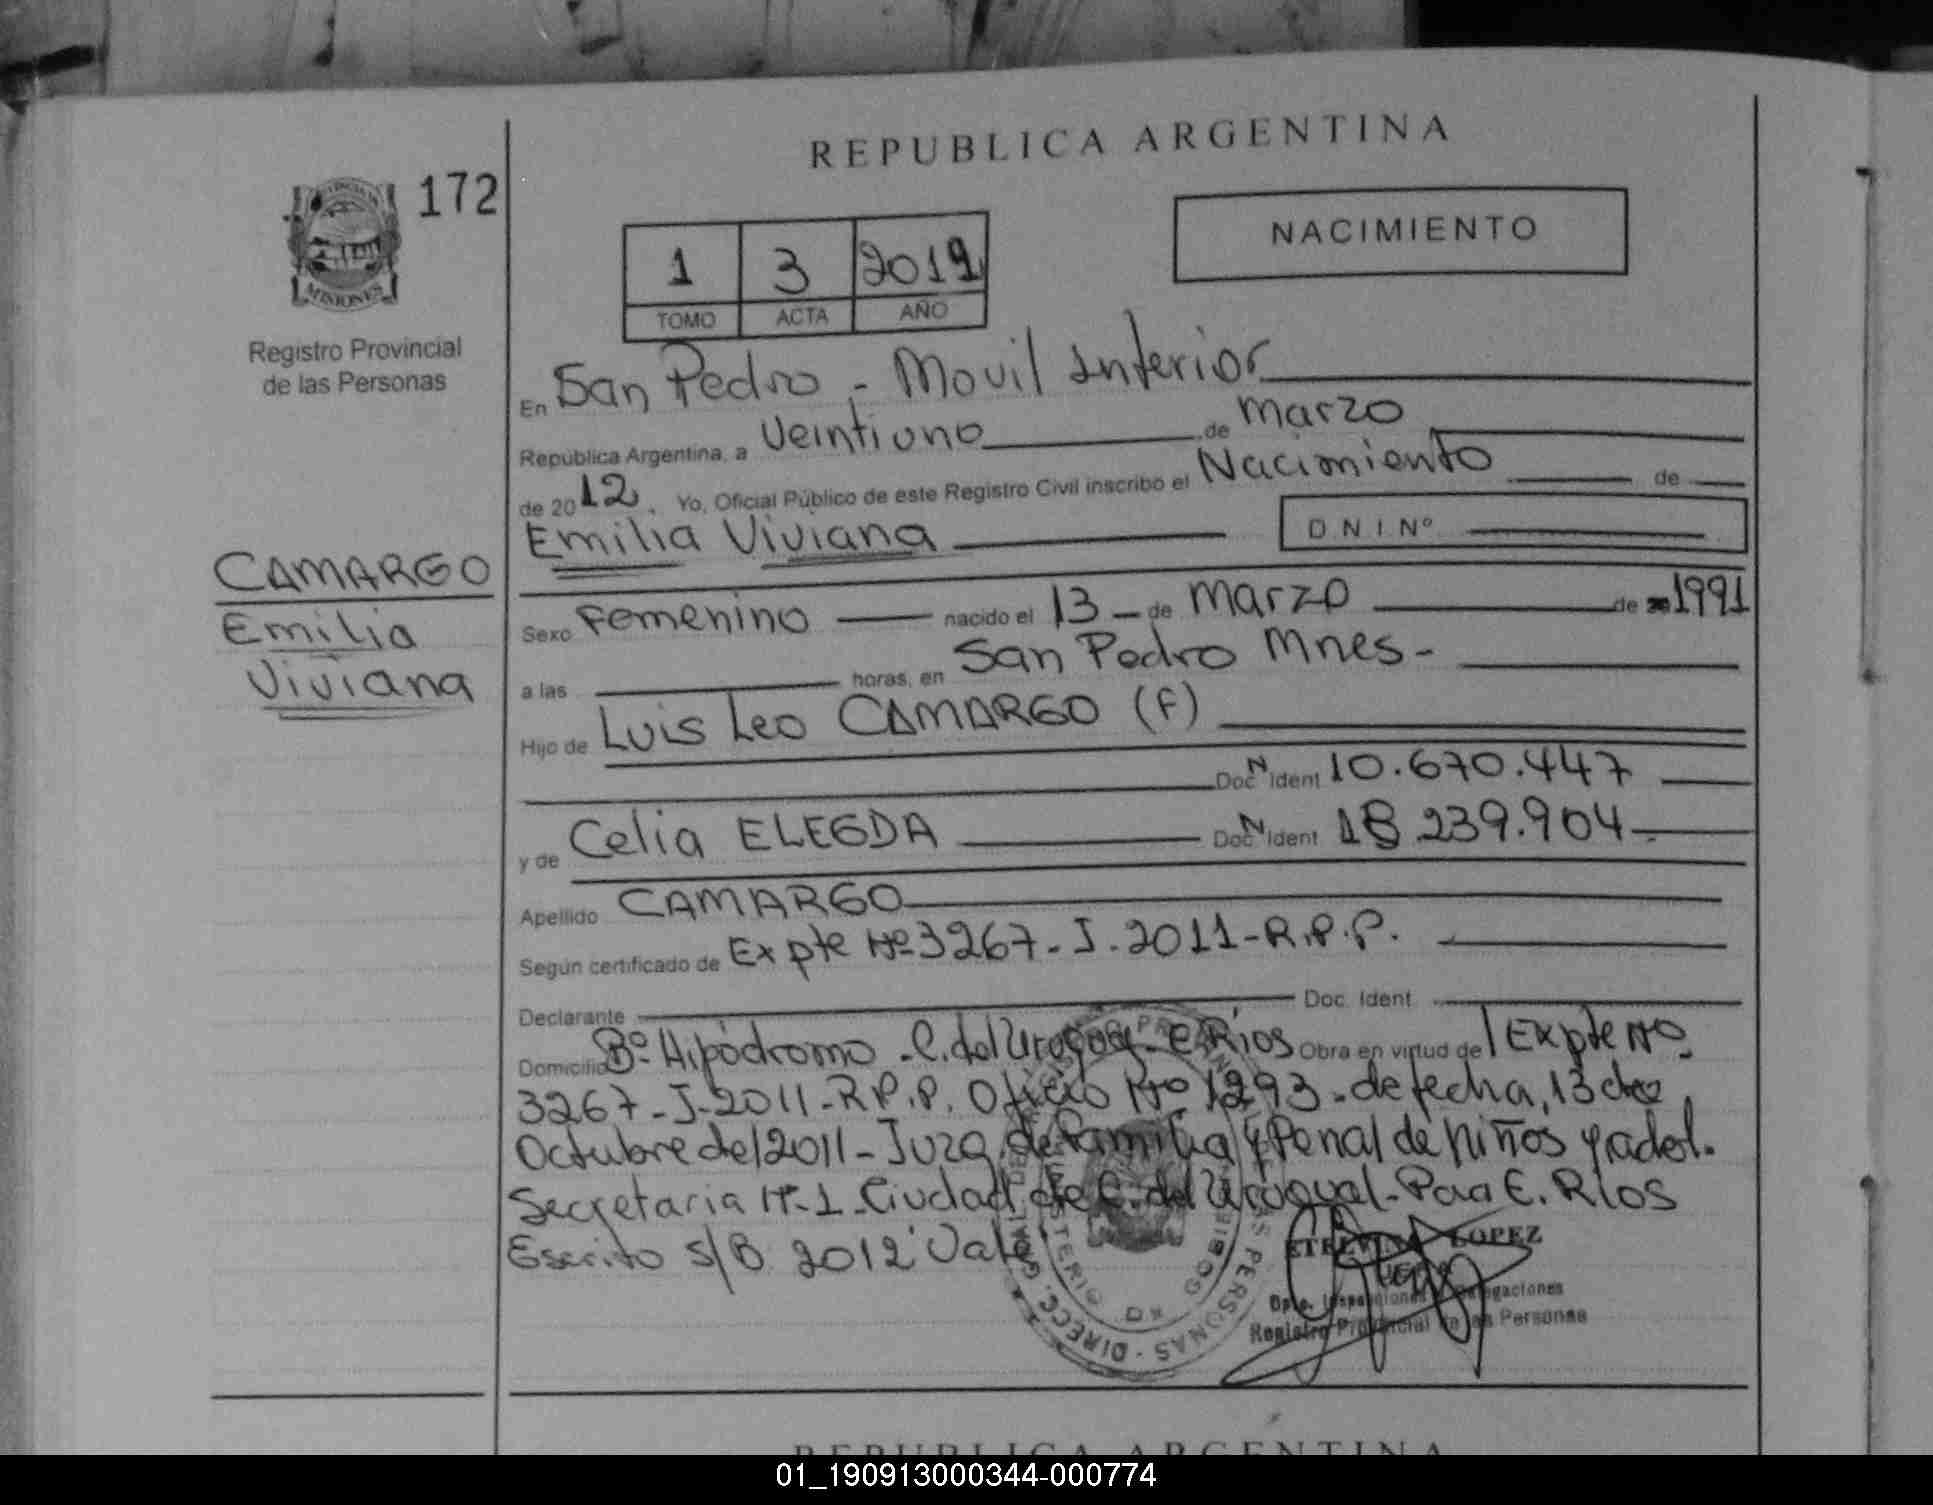 REPUBLICA ARGENTINA
172
NACIMIENTO
1 3 2012
TOMO ACTA AÑO
MISIONES
Registro Provincial
de las Personas
En San Pedro - Movil Interior
Republica Argentina, a Veintiuno de Marzo
de 2012. Yo, Oficial Público de este Registro Civil inscribo el Nacimiento de
Emilia Viviana D N I Nº
CAMARGO
Emilia
Viviana
Sexo Femenino nacido el 13 - de Marzo de 1991
a las horas, en San Pedro Mnes-
Hijo de Luis Leo CAMARGO (F)
Doc N Ident 10.670.447
y de Celia ELEGDA Doc N Ident 18.239.904
Apellido CAMARGO
Según certificado de Expte Nº 3267-J-2011-R.P.P.
Declarante Doc. Ident
Domicilio Bº Hipódromo - C. del Uruguay - E. Rios Obra en virtud de Expte Nº
3267-J-2011-R.P.P. Oficio Nº 1293 - de fecha, 13 de
Octubre del 2011 - Juzg. de Familia y Penal de Niños y adol.
Secretaria Nº 1 - Ciudad de C. del Uruguay - E. Rios
Escrito S/B 2012 Vale
ETELVINA LOPEZ
JEFE
Dpto. Inspecciones Delegaciones
Registro Provincial de las Personas
REPUBLICA ARGENTINA
01_190913000344-000774